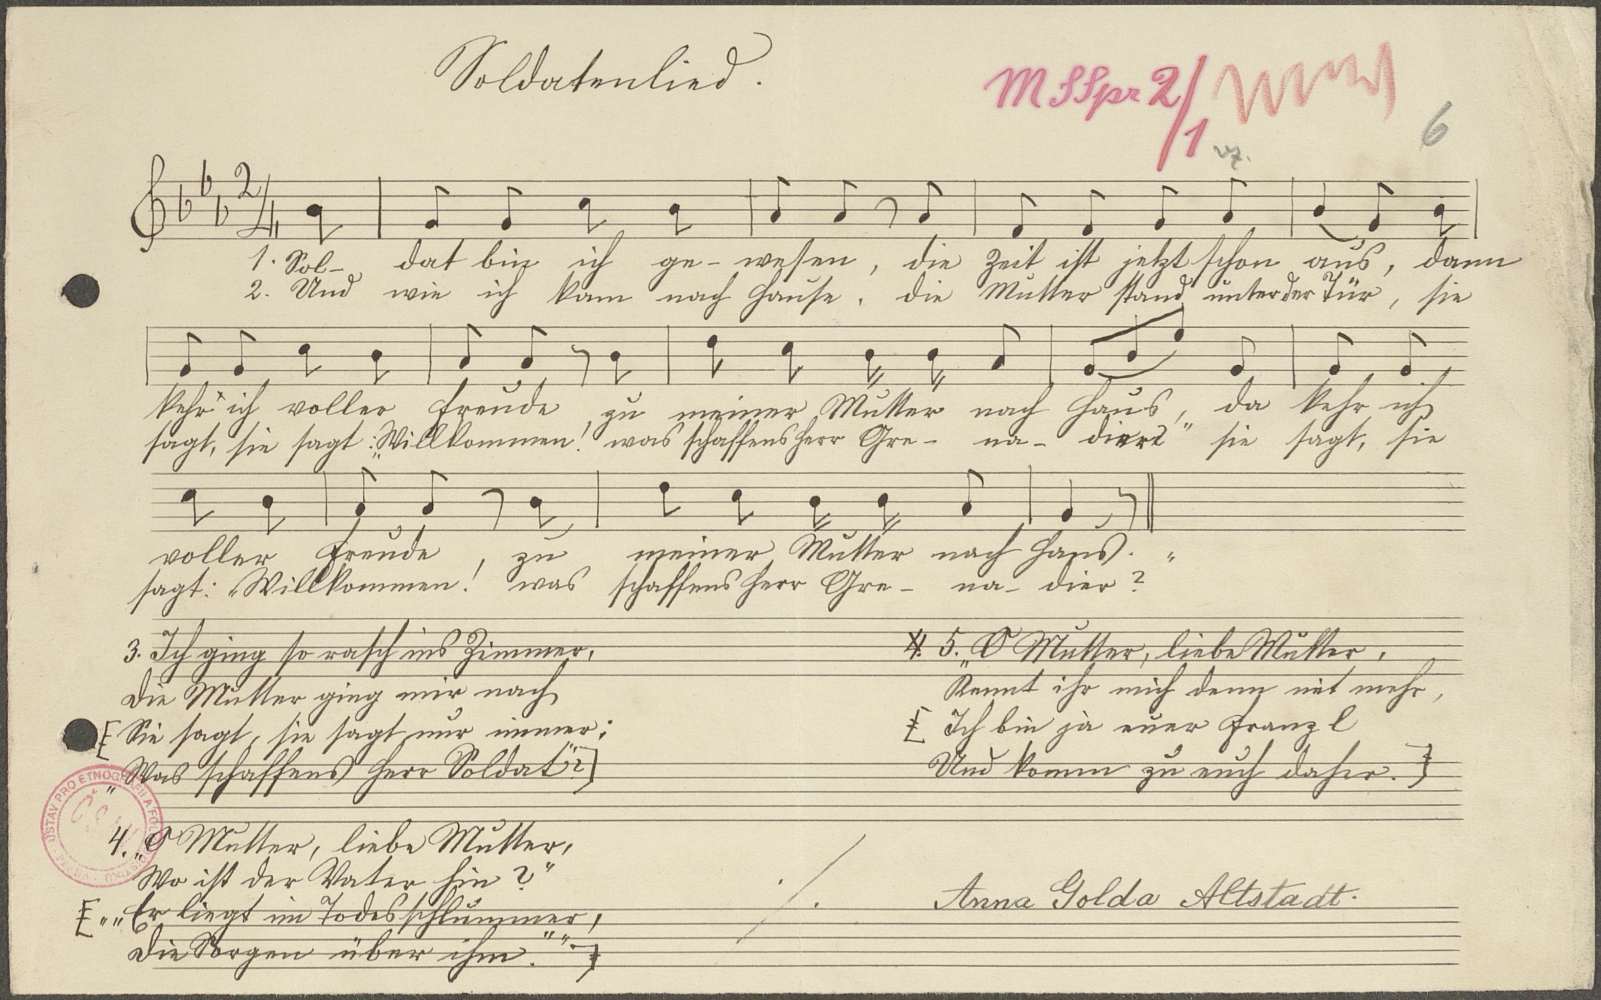 Soldatenlied.
MSSpr 2/1
6
2/4
1. Sol- dat bin ich ge- wesen, die Zeit ist jetzt schon aus, dann
2. Und wie ich kam nach Hause, die Mutter stand unter der Tür, sie
kehr' ich voller Freude zu meiner Mutter nach Haus, da kehr ich
sagt, sie sagt: „Willkommen! was schaffens Herr Gre- na- dier?" sie sagt, sie
voller Freude, zu meiner Mutter nach Haus.
sagt: „Willkommen! was schaffens Herr Gre- na- dier?"
3. Ich ging so rasch ins Zimmer,
Die Mutter ging mir nach
[Sie sagt, sie sagt nur immer:
„Was schaffens Herr Soldat"?]
4. „O Mutter, liebe Mutter,
Wo ist der Vater hin?"
[„„Er liegt im Todesschlummer,
Die Sorgen über ihm.""]
5. „O Mutter, liebe Mutter,
Kennt ihr mich denn nit mehr,
[Ich bin ja euer Franzl
Und komm zu euch daher.]
./.
Anna Golda Altstadt.
ÚSTAV PRO ETNOGRAFII A FOL